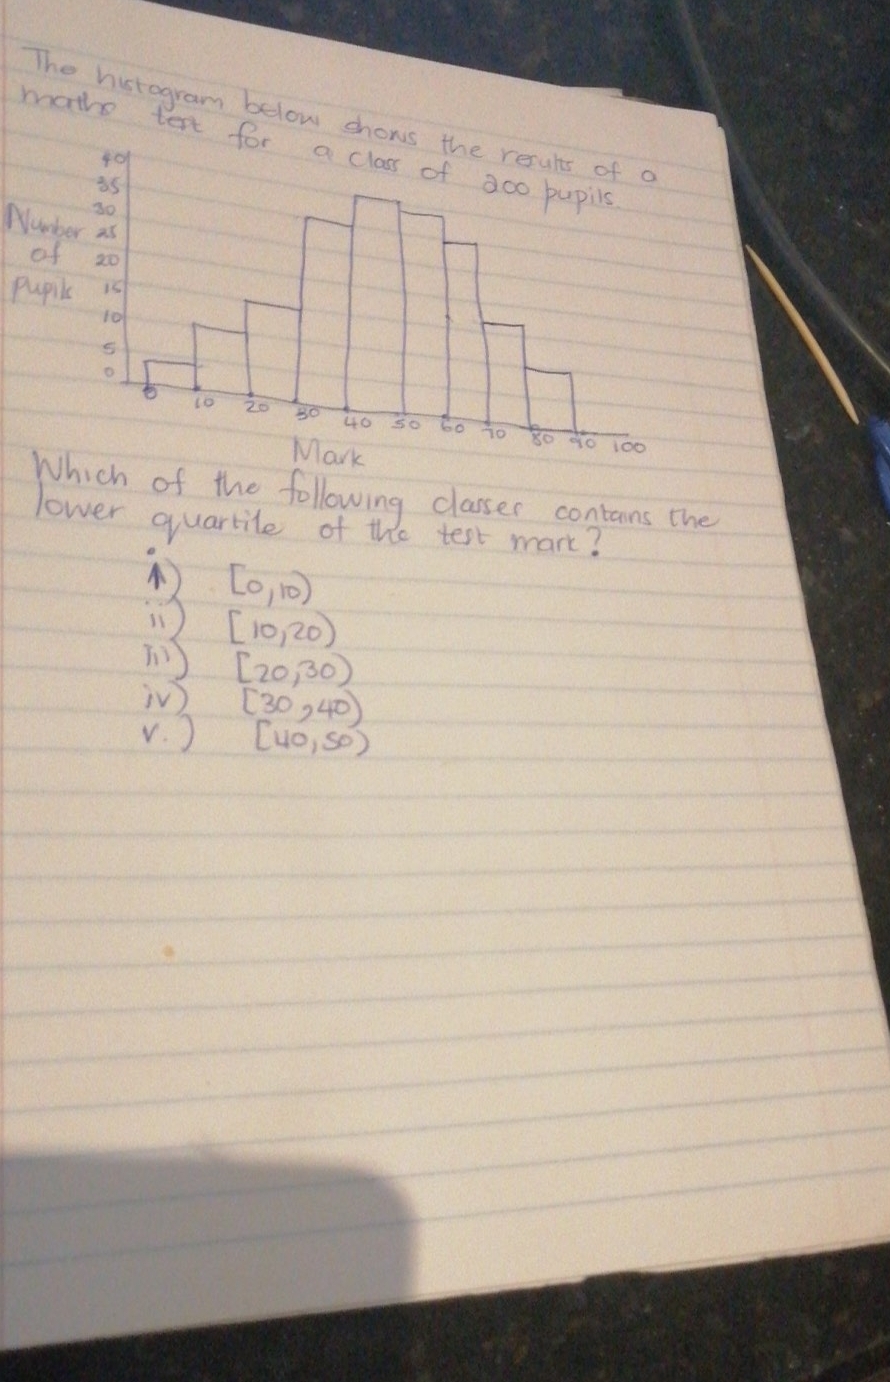 The histogram below shows the results of a
maths test for a class of 200 pupils.
40
35
30
Number 25
of 20
Pupils 15
10
5
0
0 10 20 30 40 50 60 70 80 90 100
Mark
Which of the following classes contains the
lower quartile of the test mark?
i) [0,10)
ii) [10,20)
iii) [20,30)
iv) [30,40)
v.) [40,50)